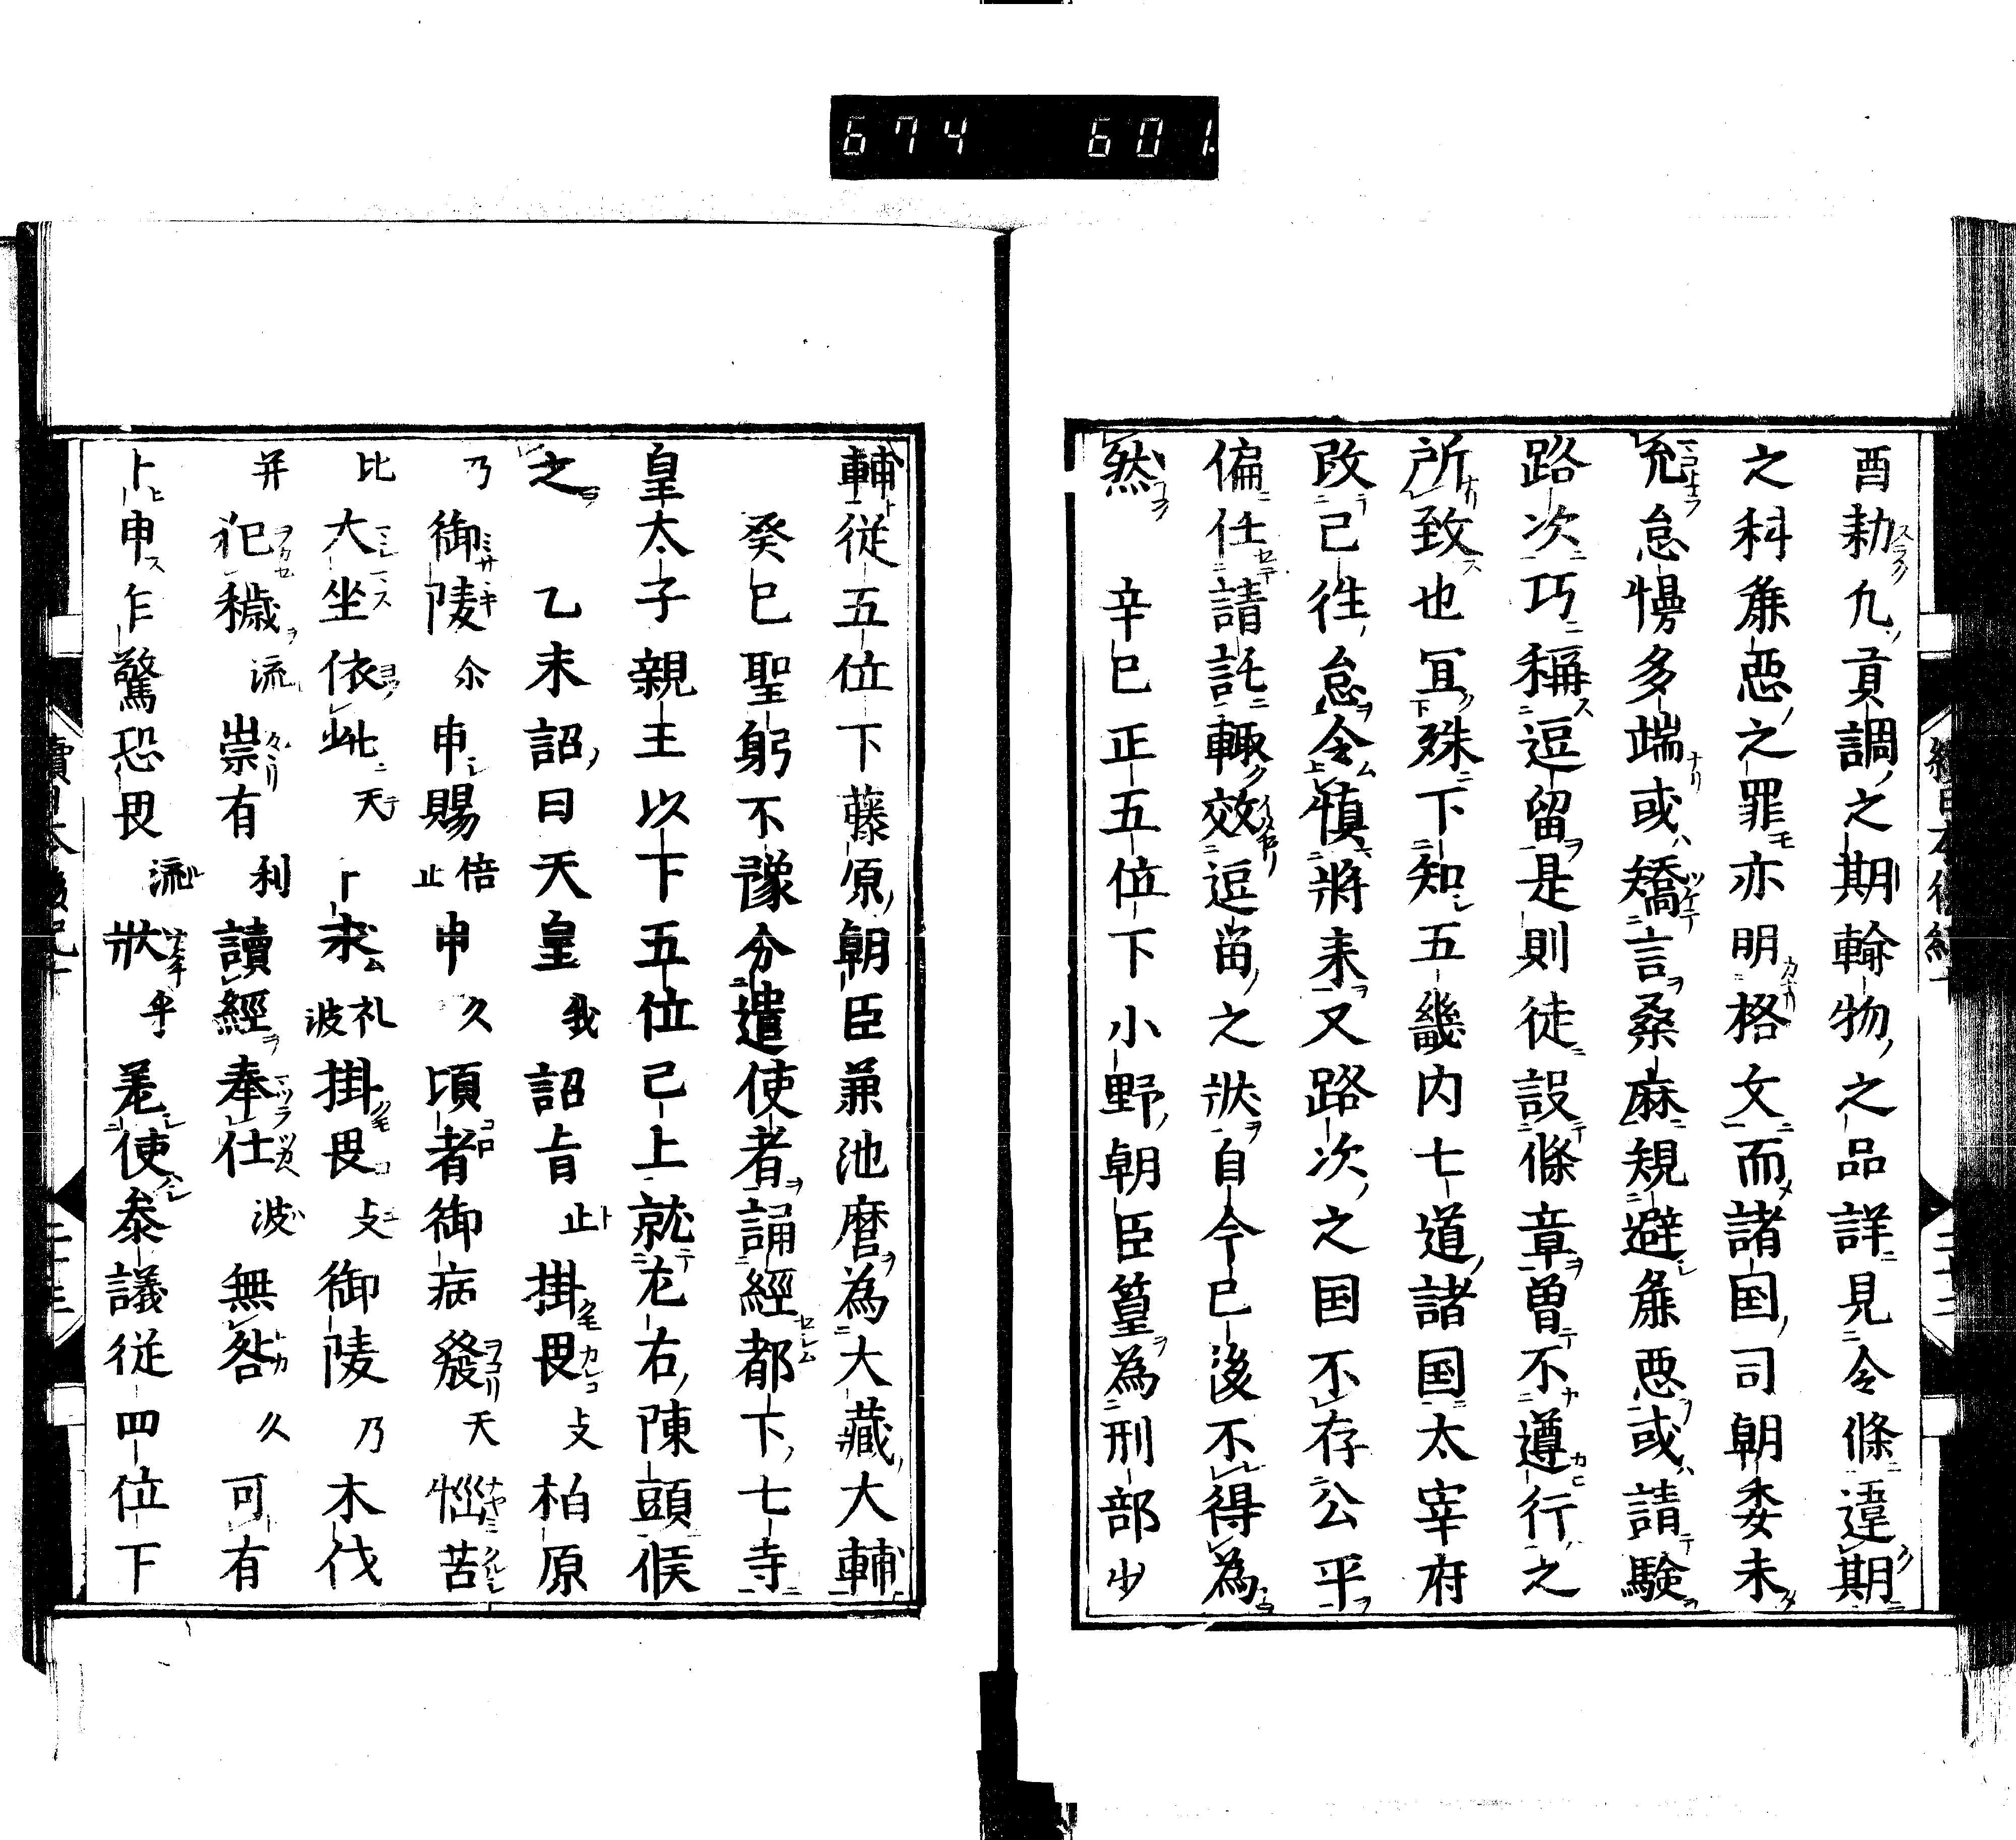 674 601
酉勅凢貢調之期輸物之品詳見令條違期
之科麁惡之罪亦明格文而諸国司朝委未
充怠慢多端或矯言桑麻規避麁惡或請驗
路次巧稱逗留是則徒設條章曽不遵行之
所致也冝殊下知五畿内七道諸国太宰府
改已徃怠令慎將来又路次之国不存公平
偏任請託輙效逗留之狀自今已後不得為
然 辛巳正五位下小野朝臣篁為刑部少
輔従五位下藤原朝臣兼池麿為大藏大輔
癸巳聖躬不豫分遣使者誦經都下七寺
皇太子親王以下五位已上就左右陳頭候
之 乙未詔曰天皇我詔旨止掛畏支柏原
乃御陵尓申賜倍止申久頃者御病發天惱苦
比大坐依此天卜求礼波掛畏支御陵乃木伐
并犯穢流崇有利讀經奉仕波無咎久可有
卜申乍驚恐畏流狀乎差使叅議従四位下